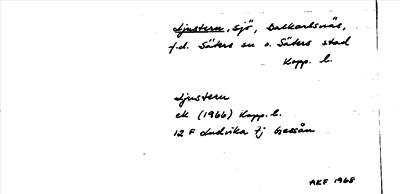 Ljustern, sjö, Dalkarlsnäs,
f.d. Säters sn o. Säters stad
Kopp. l.
Ljustern
ek (1966) Kopp. l.
12 F Ludvika fj
AKF 1968